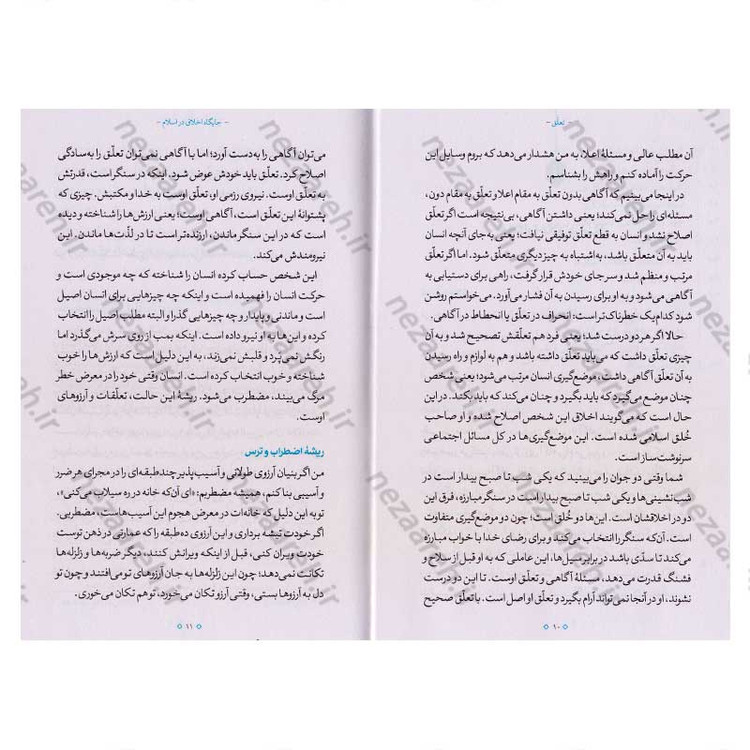 - تعلّق -
آن مطلب عالی و مسئلهٔ اعلا، به من هشدار می‌دهد که بروم وسایل این
حرکت را آماده کنم و راهش را بشناسم.
در اینجا می‌بینیم که آگاهی بدون تعلّق به مقام اعلا و تعلّق به مقام دون،
مسئله‌ای را حل نمی‌کند؛ یعنی داشتن آگاهی، بی‌نتیجه است اگر تعلّق
اصلاح نشد و انسان به قطع تعلّق توفیقی نیافت؛ یعنی به‌جای آنچه انسان
باید به آن متعلّق باشد، به‌اشتباه به چیز دیگری متعلّق شود. اما اگر تعلّق
مرتب و منظم شد و سر جای خودش قرار گرفت، راهی برای دستیابی به
آگاهی می‌شود و به او برای رسیدن به آن فشار می‌آورد. می‌خواستم روشن
شود کدام‌یک خطرناک‌تر است: انحراف در تعلّق یا انحطاط در آگاهی.
حالا اگر هر دو درست شد؛ یعنی فرد هم تعلّقش تصحیح شد و به آن
چیزی تعلّق داشت که می‌باید تعلّق داشته باشد و هم به لوازم و راه رسیدن
به آن تعلّق آگاهی داشت، موضع‌گیری انسان مرتب می‌شود؛ یعنی شخص
چنان موضع می‌گیرد که باید بگیرد و چنان می‌کند که باید بکند. در این
حال است که می‌گویند اخلاق این شخص اصلاح شده و او صاحب
خُلق اسلامی شده است. این موضع‌گیری‌ها در کل مسائل اجتماعی
سرنوشت‌ساز است.
شما وقتی دو جوان را می‌بینید که یکی شب تا صبح بیدار است در
شب‌نشینی‌ها و یکی شب تا صبح بیدار است در سنگر مبارزه، فرق این
دو در اخلاقشان است. این‌ها دو خُلق است؛ چون دو موضع‌گیری متفاوت
است. آن‌که سنگر را انتخاب می‌کند و برای رضای خدا با خواب مبارزه
می‌کند تا سدّی باشد در برابر سیل‌ها، این عاملی که به او قبل از سلاح و
فشنگ قدرت می‌دهد، مسئلهٔ آگاهی و تعلّق اوست. تا این دو درست
نشوند، او در آنجا نمی‌تواند آرام بگیرد و تعلّق او اصل است. با تعلّق صحیح
۱۰
- جایگاه اخلاق در اسلام -
می‌توان آگاهی را به‌دست آورد؛ اما با آگاهی نمی‌توان تعلّق را به‌سادگی
اصلاح کرد. تعلّق باید خودش عوض شود. اینکه در سنگر است، قدرتش
به تعلّق اوست. نیروی رزمی او، تعلّق اوست به خدا و مکتبش. چیزی که
پشتوانهٔ این تعلّق است، آگاهی اوست؛ یعنی ارزش‌ها را شناخته و دیده
است که در این سنگر ماندن، ارزنده‌تر است تا در لذّت‌ها ماندن. این
نیرومندش می‌کند.
این شخص حساب کرده انسان را شناخته که چه موجودی است و
حرکت انسان را فهمیده است و اینکه چه چیزهایی برای انسان اصیل
است و ماندنی و پایدار و چه چیزهایی گذرا و البته مطلب اصیل را انتخاب
کرده و این‌ها به او نیرو داده است. اینکه بمب از روی سرش می‌گذرد اما
رنگش نمی‌پرد و قلبش نمی‌زند، به این دلیل است که ارزش‌ها را خوب
شناخته و خوب انتخاب کرده است. انسان وقتی خود را در معرض خطر
مرگ می‌بیند، مضطرب می‌شود. ریشهٔ این حالت، تعلّقات و آرزوهای
اوست.
ریشهٔ اضطراب و ترس
من اگر بنیان آرزوی طولانی و آسیب‌پذیر چندطبقه‌ای را در مجرای هر ضرر
و آسیبی بنا کنم، همیشه مضطربم: «ای آن‌که خانه در ره سیلاب می‌کنی»،
تو به این دلیل که خانه‌ات در معرض هجوم این آسیب‌هاست، مضطربی.
اگر خودت تیشه برداری و این آرزوی ده‌طبقه را که عمارتی در ذهن توست
خودت ویران کنی، قبل از اینکه ویرانش کنند، دیگر ضربه‌ها و زلزله‌ها
تکانت نمی‌دهد؛ چون این زلزله‌ها به جان آرزوهای تو می‌افتند و چون تو
دل به آرزوها بستی، وقتی آرزو تکان می‌خورد، تو هم تکان می‌خوری.
۱۱
nezaareh.ir